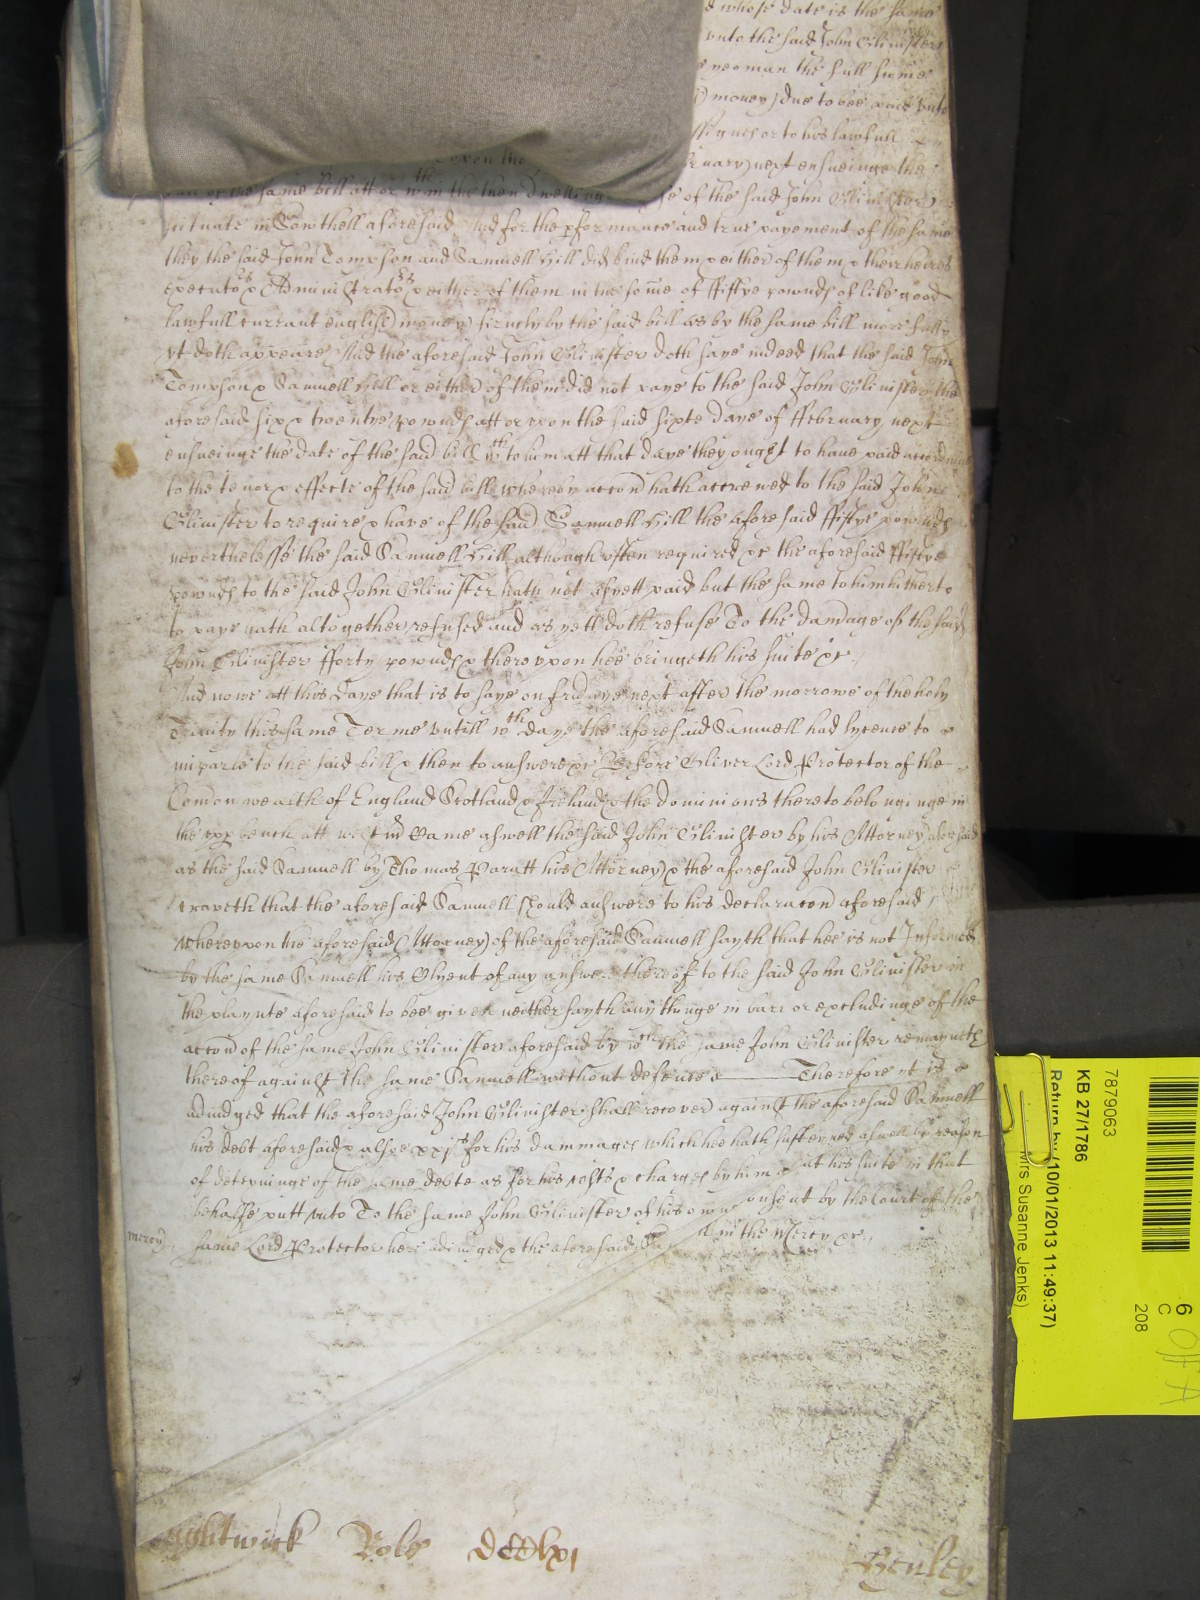 whose date is the same
vnto the said John Glinister
yeoman the full some
money due to bee paid vnto
assignes or to his lawfull
next ensueinge the
vpon the
of the same bill att or wthin the then dwelling of the said John Glinister
situate in Sowthell aforesaid And for the pformance and true payement of the same
they the said John Tompson and Samuell Hill did bind them & either of them & their heires
executors & Administrators & either of them in the some of ffiftye pownds of like good
lawfull currant english money firmly by the said bill as by the same bill more fully
yt doth appeare And the aforesaid John Glinister doth saye indeed that the said John
Tompson & Samuell Hill or either of them did not paye to the said John Glinister the
aforesaid six & twentye pownds att or vpon the said sixte daye of ffebruary next
ensueinge the date of the said bill wth to him att that daye they ought to haue paid
to the tenor & effecte of the said bill whereby accon hath accrewed to the said John
Glinister to require & haue of the said Samuell Hill the aforesaid ffiftye pownds
neverthelesse the said Samuell Hill although often required &c the aforesaid ffiftye
pownds to the said John Glinister hath not as yett paid but the same to him hitherto
to paye hath altogether refused and as yett doth refuse To the damage of the said
John Glinister fforty pownds & therevpon hee bringeth his suite &c
And nowe att this daye that is to saye on fridaye next after the morrowe of the holy
Trinity this same Terme vntill wth daye the aforesaid Samuell had lycence to
imparle to the said bill & then to answere &c Before Oliver Lord Protector of the
Comon wealth of England Scotland & Ireland & the dominions thereto belonginge in
the vpp bench att came aswell the said John Glinister by his Attorney aforesaid
as the said Samuell by Thomas Paratt his Attorney & the aforesaid John Glinister
prayeth that the aforesaid Samuell should answere to his declaracon aforesaid
wherevpon the aforesaid Attorney of the aforesaid Samuell sayth that hee is not Informed
by the same Samuell his Clyent of any answere thereof to the said John Glinister in
the playnte aforesaid to bee given neither sayth any thinge in barr or excludinge of the
accon of the same John Glinister aforesaid by wch the same John Glinister remayneth
thereof against the same Samuell without defence Therefore it is
adiudged that the aforesaid John Glinister shall recover against the aforesaid Samuell
his debt aforesaid & alsoe xxjs for his dammages which hee hath susteyned aswell by reason
of deteyninge of the same debte as for his costs & charges by him at his suite in that
behalfe putt vnto To the same John Glinister of his owne onsent by the Court of the
mercy same Lord Protector here adiudged & the aforesaid in the Mercy &c
ightwick Robs Henley
7879063
KB 27/1786
Return by (10/01/2013 11:49:37)
Mrs Susanne Jenks)
6
C
208